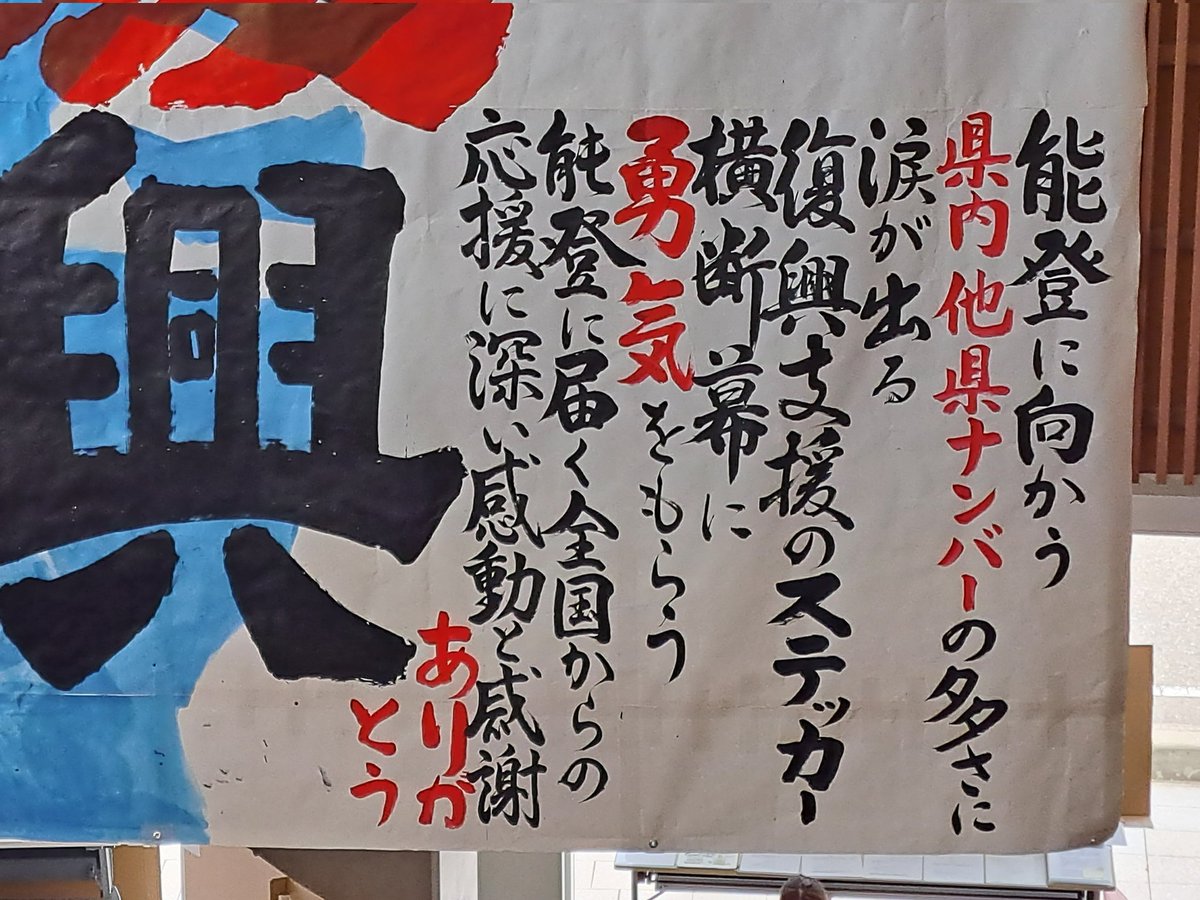 能登に向かう
県内他県ナンバーの多さに
涙が出る
復興支援のステッカー
横断幕に
勇気をもらう
能登に届く全国からの
応援に深い感動と感謝
ありが
とう
興